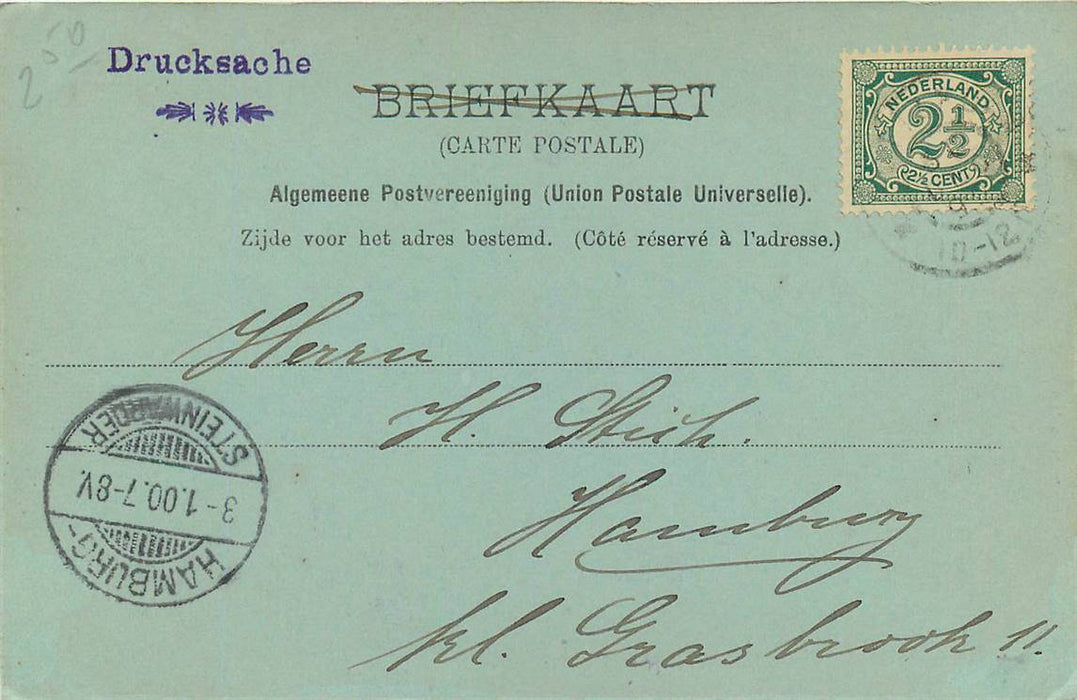 2 50
Drucksache
BRIEFKAART
(CARTE POSTALE)
Algemeene Postvereeniging (Union Postale Universelle).
Zijde voor het adres bestemd. (Côté réservé à l'adresse.)
NEDERLAND
2 1/2
2½ CENT
10-12
Herrn
H. Stich.
Hamburg
kl. Grasbrook 11
HAMBURG-
3-1.00.7-8V.
STEINWÄRDER